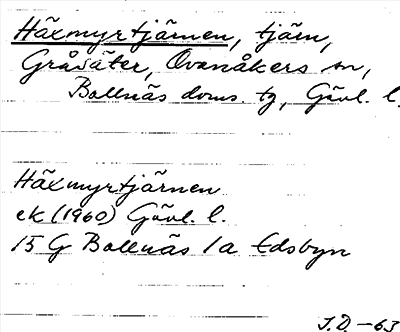 Häxmyrtjärnen, tjärn,
Gråsäter, Ovanåkers sn,
Bollnäs doms. tg, Gävl. l.
Häxmyrtjärnen
ek (1960) Gävl. l.
15 G Bollnäs 1a Edsbyn
J.D. -63